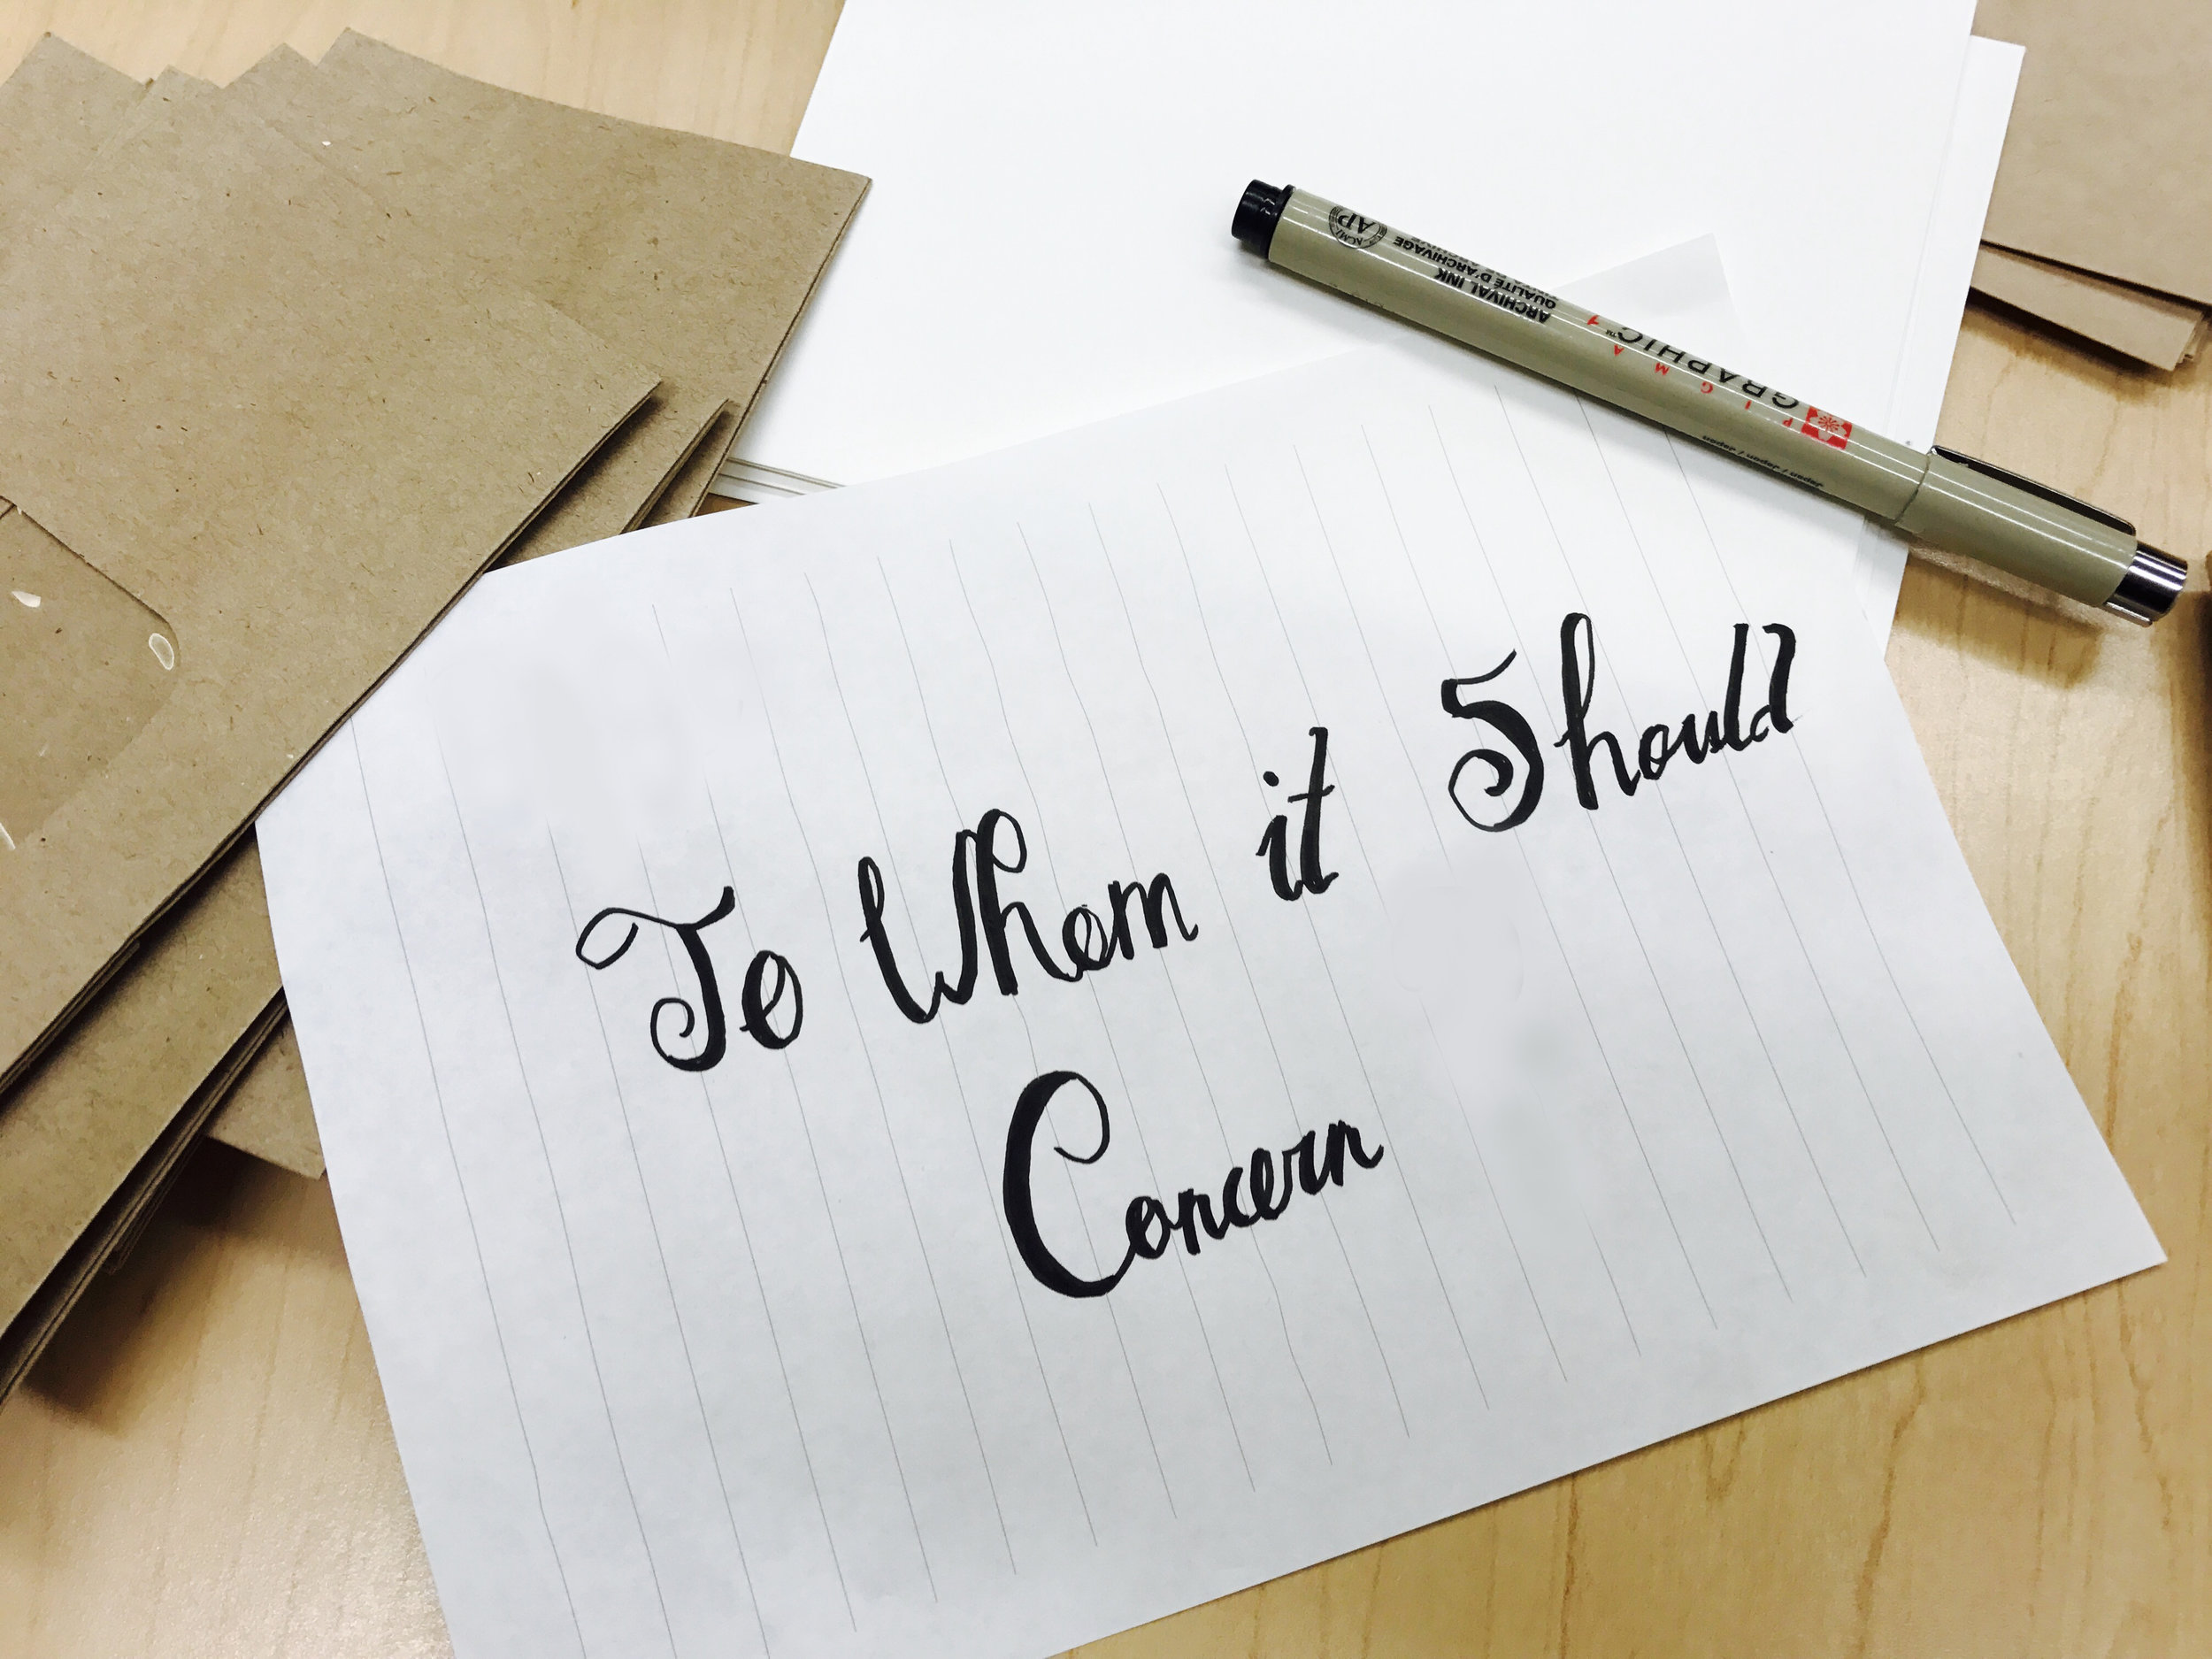 To Whom it Should
Concern
PIGMA
GRAPHIC™ 1
ARCHIVAL INK
QUALITÉ D'ARCHIVAGE
AP
ACMI
Japan / Japon / Japan